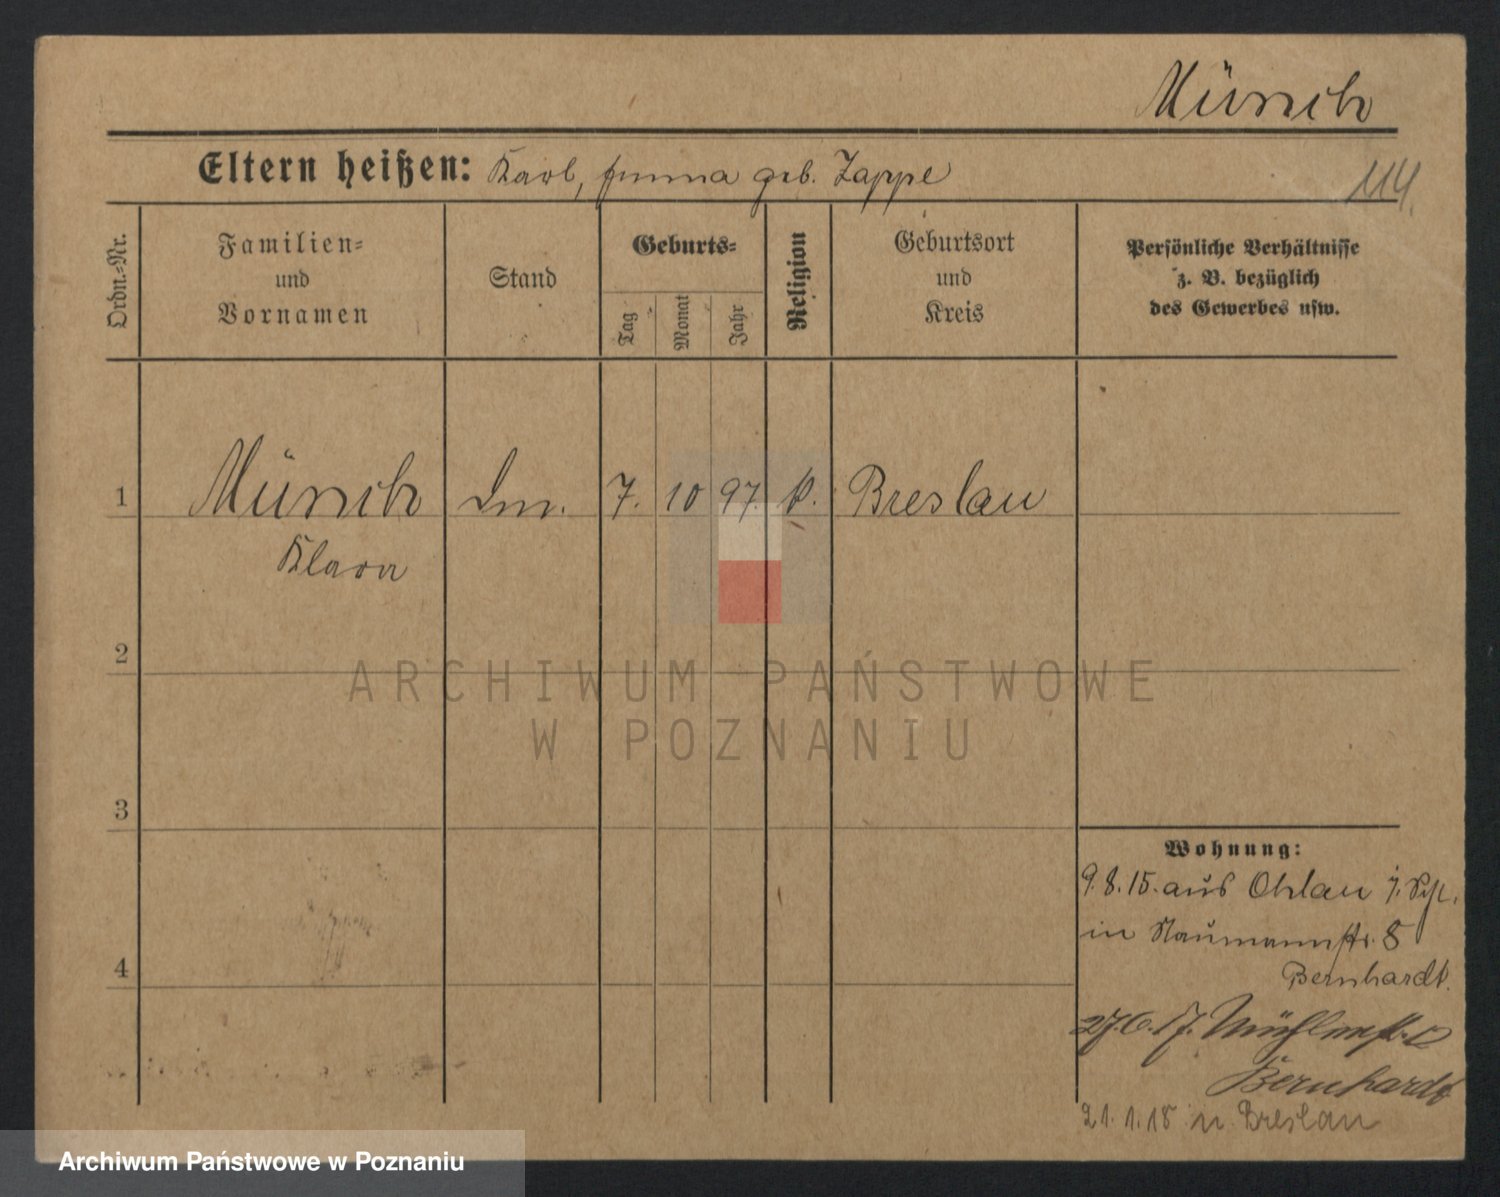 Münch
Eltern heißen: Karl, Emma geb. Zappe
114.
Ordn.-Nr.
Familien-
und
Vornamen
Stand
Geburts-
Tag
Monat
Jahr
Religion
Geburtsort
und
Kreis
Persönliche Verhältnisse
z. B. bezüglich
des Gewerbes usw.
1 Münch 7. 10 97. k. Breslau
Klara
2
3
4
Wohnung:
9.8.15. aus Ohlau
in Naumannstr. 8
Bernhardt.
27.6.17. Mühlenstr.
Bernhardt
21.1.18 n. Breslau
ARCHIWUM PAŃSTWOWE
W POZNANIU
Archiwum Państwowe w Poznaniu